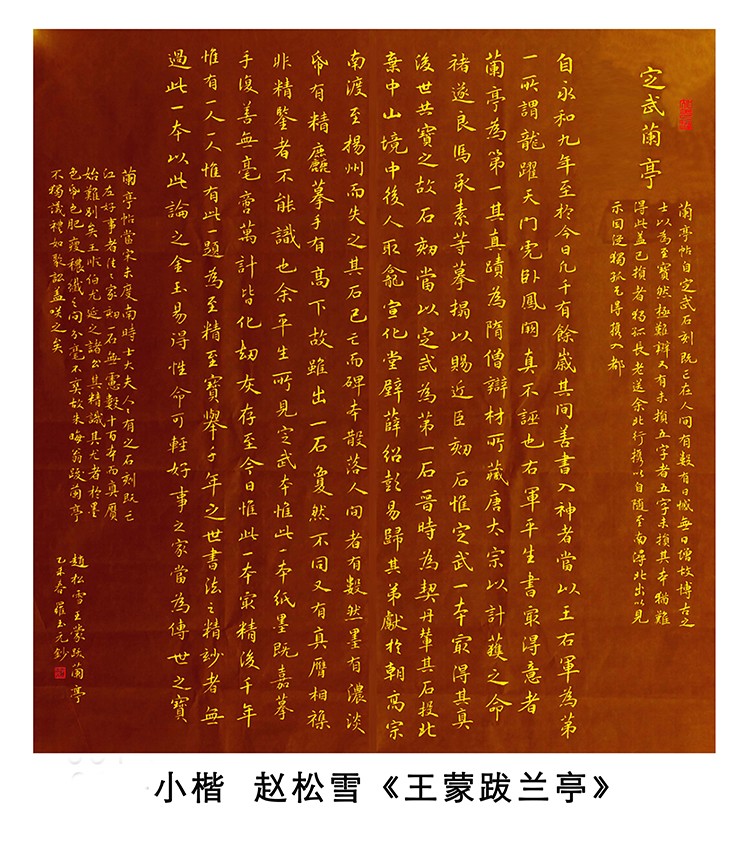 定武蘭亭
蘭亭帖自定武石刻既亡在人间有數有日減無日增故博古之
士以為至寶然極難辯又有未損五字者五字未損其本猶難
得此蓋已損者獨孤長老送余北行攜以自隨至南潯北出以見
示因從獨孤乞得攜入都
自永和九年至於今日凡千有餘歲其间善書入神者當以王右軍為第
一所謂龍躍天門虎卧鳳閣真不誣也右軍平生書最得意者
蘭亭為第一其真蹟為隋僧辯材所藏唐太宗以計獲之命
褚遂良馮承素等摹搨以賜近臣刻石惟定武一本最得其真
後世共寶之故石刻當以定武為第一石晉時為契丹輦其石投北
棄中山境中後人取龕宣化堂壁薛紹彭易歸其弟獻於朝高宗
南渡至楊州而失之其石已亡而碑本散落人间者有數然墨有濃淡
帋有精麤摹手有高下故雖出一石夐然不同又有真贗相襍
非精鑒者不能識也余平生所見定武本惟此一本紙墨既嘉摹
手復善無毫萬計皆化劫灰存至今日惟此一本最精後千年
惟有一人一人惟有此一題為至精至寶舉千年之世書法之精妙者無
過此一本以此論之金玉易得性命可輕好事之家當為傳世之寶
蘭亭帖當宋未度南時士大夫人人有之石刻既亡
江左好事者往往家刻一石無慮數十百本而真贗
始難別矣王順伯尤延之諸公其精識其尤者於墨
色帋色肥瘦穠纖之间分毫不爽故朱晦翁跋蘭亭
不獨議禮如聚訟蓋笑之矣
趙松雪王蒙跋蘭亭
乙未春 崔玉元鈔
小楷 赵松雪《王蒙跋兰亭》